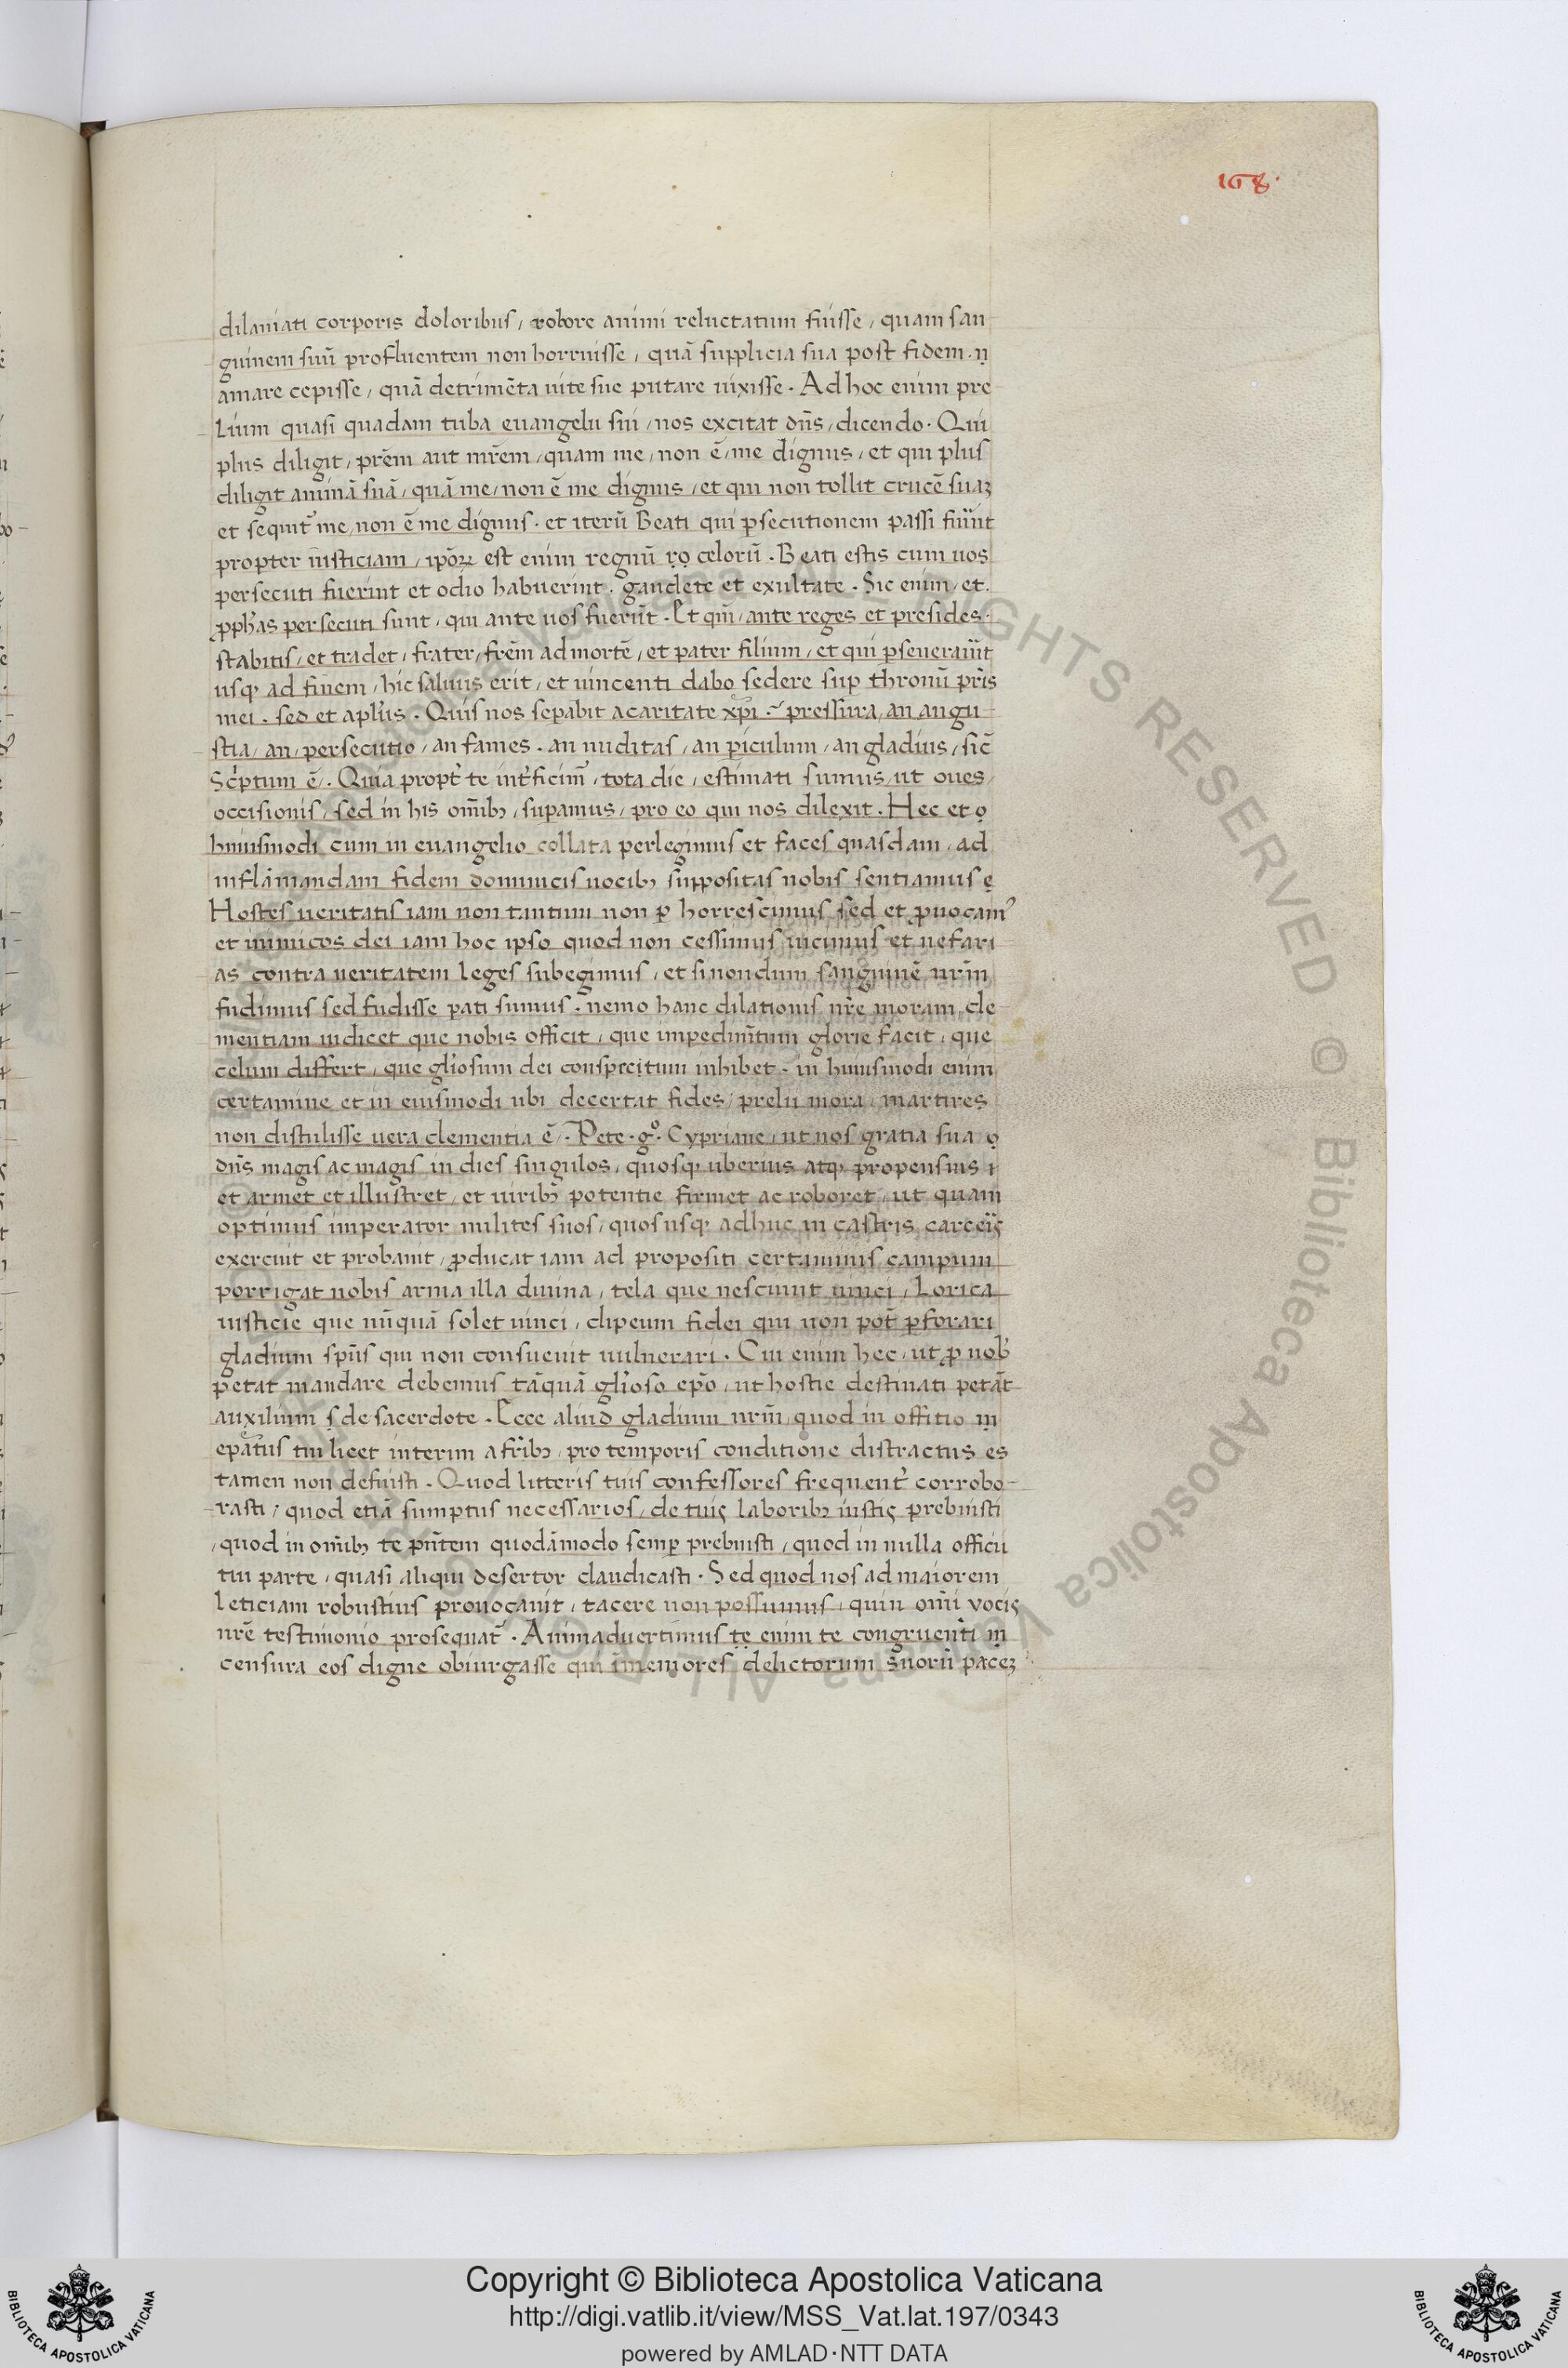 168.
dilaniati corporis doloribus, robore animi reluctatum fuisse, quam san-
guinem suũ profluentem non horruisse, quã supplicia sua post fidem. ṇ
amare cepisse, quã detrimẽta uite sue putare uixisse. Ad hoc enim pre-
lium quasi quadam tuba euangelii sui, nos excitat dñs, dicendo. Qui
plus diligit, prẽm aut mr̃em, quam me, non ẽ, me dignus, et qui plus
diligit animã suã, quã me, non ẽ me dignus, et qui non tollit crucẽ suaꝫ
et sequit᷑ me, non ẽ me dignus. et iterũ Beati qui ꝑsecutionem passi fiu̇nt
propter iusticiam, ipõꝝ est enim regnũ ṛọ celorũ. Beati estis cum uos
persecuti fuerint et odio habuerint. gaudete et exultate. Sic enim, et.
ꝓph̃as persecuti sunt, qui ante uos fuerũt. Et qm̃, ante reges et presides.
stabitis, et tradet, frater, frẽm ad mortẽ, et pater filium, et qui ꝑseuerauit
usqꝫ ad finem, hic saluus erit, et uincenti dabo sedere suꝑ thronũ pr̃is
mei. sed et apl̃us. Quis nos sepabit a caritate xp̃i. pressura, an angu-
stia, an, persecutio, an fames. an nuditas, an ꝑiculum, an gladius, sic̃
Sc̓ptum ẽ. Quia propt̓ te int̓ficim᷑, tota die, estimati sumus, ut oues,
occisionis, sed in his om̃ibꝫ, suꝑamus, pro eo qui nos dilexit. Hec et ọ
huiusmodi cum in euangelio collata perlegimus et faces quasdam, ad
inflãmandam fidem dominicis uocibꝫ suppositas nobis sentiamus ẹ
Hostes ueritatis iam non tantum non ꝑ horrescimus sed et ꝓuocam᷒
et inimicos dei iam hoc ipso quod non cessimus uicimus et nefari
as contra ueritatem leges subegimus, et si nondum sanguinẽ nrm̃
fudimus sed fudisse ꝑati sumus. nemo hanc dilationis nr̃e moram, cle-
mentiam iudicet que nobis officit, que impedimt̃um glorie facit, que
celum differt, que gl̓iosum dei conspecitum inhibet. in huiusmodi enim
certamine et in eiusmodi ubi decertat fides, prelii mora, martires
non distulisse uera clementia ẽ. Pete. g°. Cypriane, ut nos gratia sua ọ
dñs magis ac magis in dies singulos, quosqꝫ uberius atqꝫ propensius i
et armet et illustret, et uiribꝫ potentie firmet ac roboret, ut quam
optimus imperator milites suos, quos usqꝫ adhuc in castris carceiș
exercuit et probauit, ꝓducat iam ad propositi certaminis campum
porrigat nobis arma illa diuina, tela que nesciunt uinci, Lorica
iusticie que nũquã solet uinci, clipeum fidei qui non pot̃ ꝑforari
gladium sp̃us qui non consueuit uulnerari. Cui enim hec, ut ꝓ nob̓
petat mandare debemus tãquã gl̓ioso ep̃o, ut hostie destinati petãt
auxilium ṣ de sacerdote. Ecce aliud gladium nrm̃, quod in offitio ṃ
ep̃atus tui licet interim a fr̃ibꝫ, pro temporis conditione distractus es
tamen non defuisti. Quod litteris tuis confessores frequent̓ corrobo-
rasti, quod etiã sumptus necessarios, de tuiș laboribꝫ iustiș prebuisti
, quod in om̃ibꝫ te pñtem quodãmodo semꝑ prebuisti, quod in nulla officii
tui parte, quasi aliqui desertor claudicasti. Sed quod nos ad maiorem
leticiam robustius prouocauit, tacere non possumus, quin om̃i vociș
nr̃e testimonio prosequat᷑. Animaduertimus ṭẹ enim te congruenti ṃ
censura eos digne obiurgasse qui ĩmemores delictorum suorũ paceꝫ
© Biblioteca Apostolica Vaticana ALL RIGHTS RESERVED
Copyright © Biblioteca Apostolica Vaticana
http://digi.vatlib.it/view/MSS_Vat.lat.197/0343
powered by AMLAD·NTT DATA
BIBLIOTECA APOSTOLICA VATICANA
BIBLIOTECA APOSTOLICA VATICANA